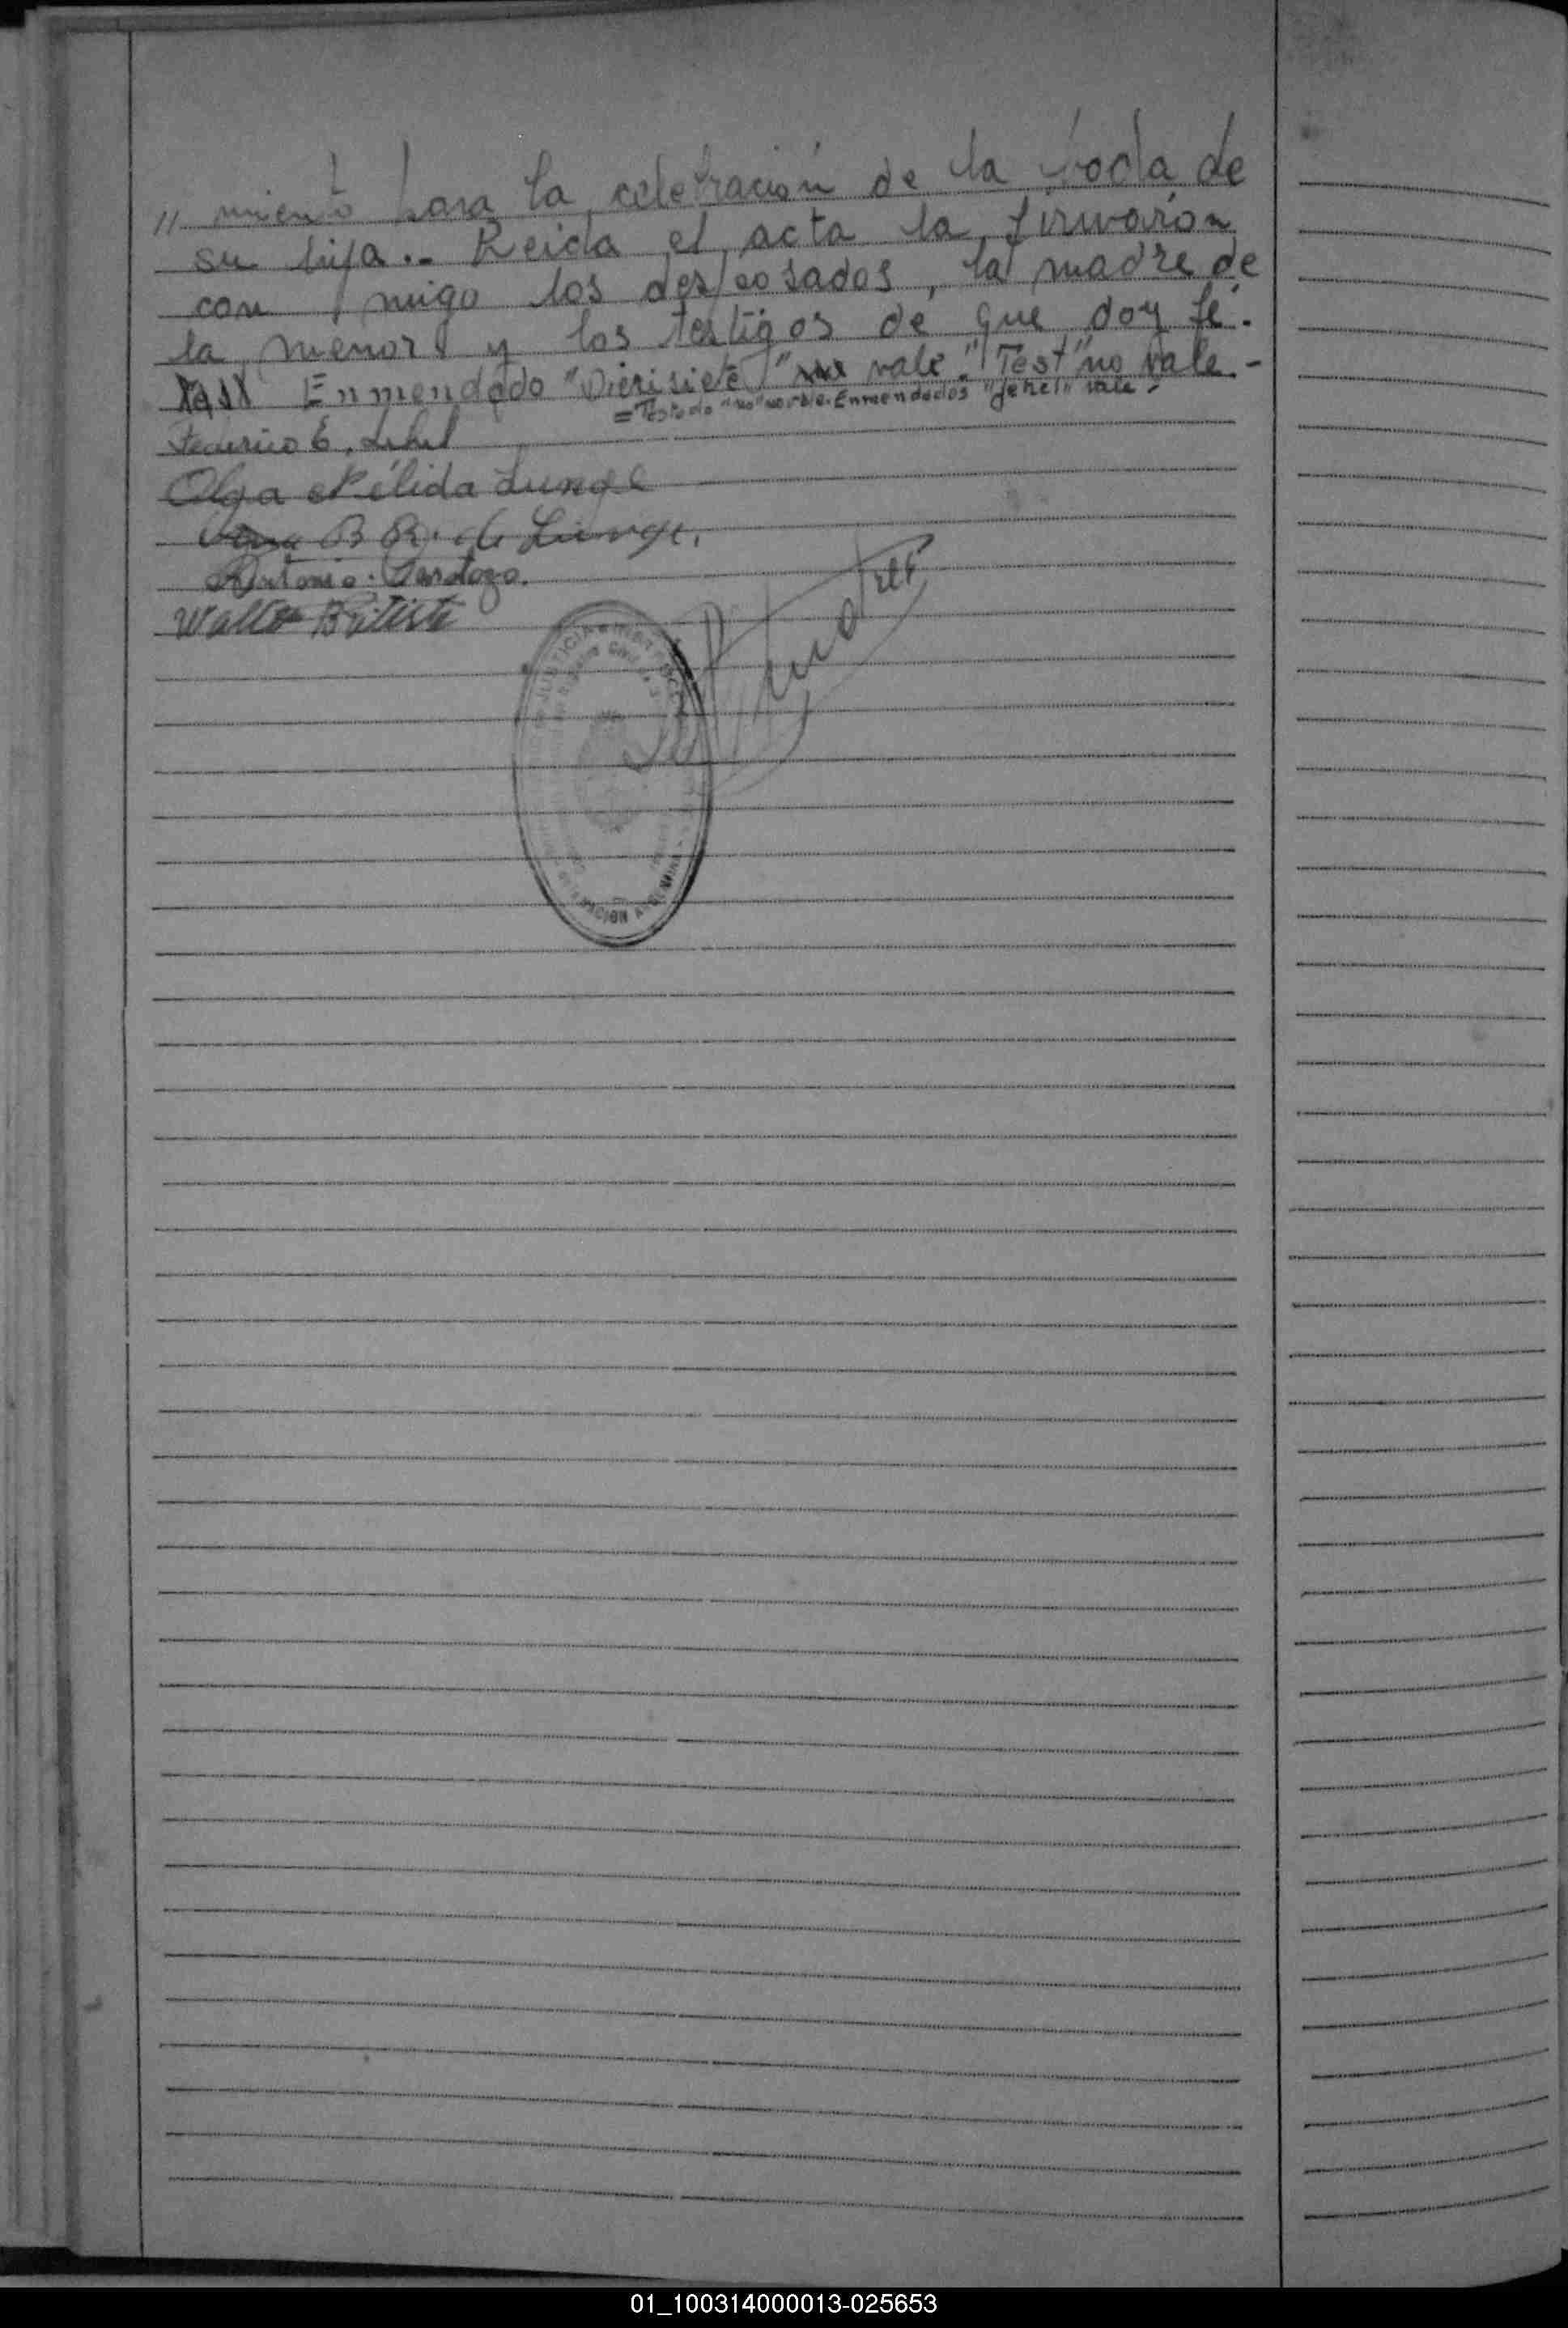 // miento para la celebración de la boda de
su hija.- Leida el acta la firmaron
con migo los desposados, la madre de
la menor y los testigos de que doy fé.
Enmendado "Diecisiete" vale." Test "no vale.-
=Testado "no" no vale. Enmendados "Jehel" vale-
Federico E. Lehel
Olga Nélida Lunge
B R. de Lunge.
Antonio. Cardozo.
Walter Batista
NACION
01_100314000013-025653